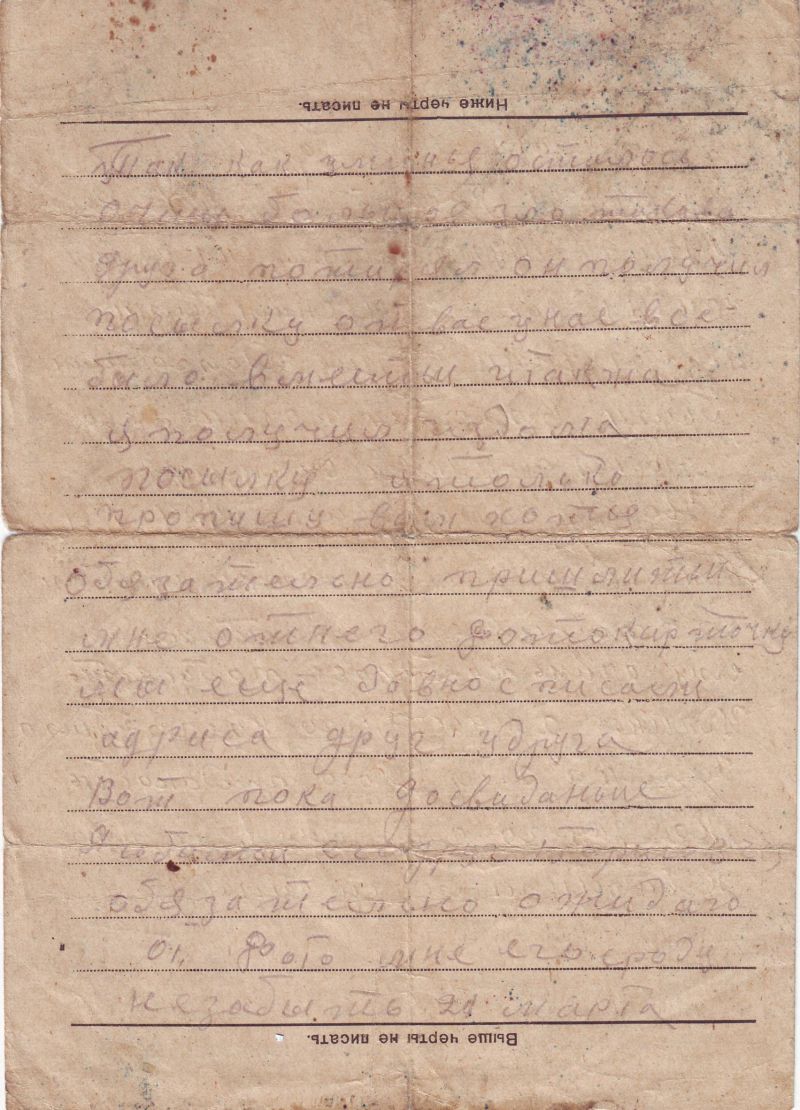 Ниже черты не писать.
Так как уменья осталось
большое
друга он получил
посылку от вас унас все
было вместы итакжа
уполучил издома
посылку итолько
пропишу вам хотья
Обязательно пришлитьи
мне отнего Фотокарточку
мы еще довно списали
адриса друг удруга
Вот пока Досвиданьие
друг
обязательно ожидаю
От Фото мне его сроду
незабыть 21 марта
Выше черты не писать.